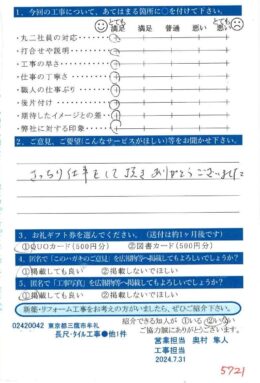 1．今回の工事について、あてはまる箇所に○を付けて下さい。
とても満足 満足 普通 悪い とても悪い
・丸二社員の対応
・打合せや説明
・工事の早さ
・仕事の丁寧さ
・職人の仕事ぶり
・後片付け
・期待したイメージとの差
・弊社に対する印象
2．ご意見、ご要望(こんなサービスがほしい)等をお聞かせ下さい。
きっちり仕事をして頂きありがとうございました
3．お礼ギフト券を選んでください。(送付は約1ヶ月後です)
①QUOカード(500円分) ②図書カード(500円分)
4．匿名で「このハガキのご意見」を広報物等へ掲載してもよろしいでしょうか？
①掲載しても良い ②掲載しないでほしい
5．匿名で「工事写真」を広報物等へ掲載してもよろしいでしょうか？
①掲載しても良い ②掲載しないでほしい
新築・リフォーム工事をお考えの方がいましたら、ぜひご紹介下さい。
紹介できる知人が ①いる ②いない
02420042 東京都三鷹市牟礼
長尺・タイル工事●他1件
ご協力誠にありがとうございます。
営業担当 奥村 隼人
工事担当
2024.7.31
5721